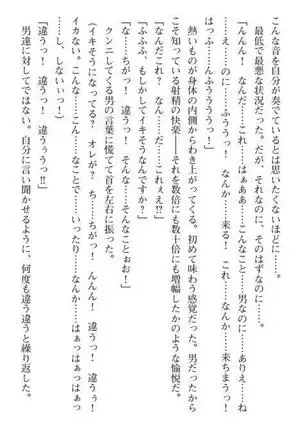 こんな音を自分が奏でているとは思いたくないほどに……。
最低で最悪な状況だった。だが、それなのに、そのはずなのに……。
「んんん！　なんだ……これ……はぁぁぁ……こんなこと……男なのに……ありえ……ね
え……。のに……ふううっ！　なんか……来る！　これ……なんか……来ちまうっ！
はっふ……んふうううっ！」
熱いものが身体の内側からわき上がってくる。初めて味わう感覚だった。男だったから
こそ知っている射精の快楽――それを数倍にも数十倍にも増幅したかのような愉悦だ。
「なんだこれ？　なん……だ……これぇえ!?」
「ふふふ、もしかしてイキそうなんですか？」
「な……ちがっ！　違うっ！　そんな……そんなことぉお！」
クンニしてくる男の言葉に慌てて首を左右に振った。
（イキそうになってる？　オレが？　ち……ちがっ！　んんん！　違うっ！　違うぅ！
イカない……。こんな……こんな……なことで……いったり……なんか……はぁっはぁっはぁっ
……し、しないぃっ！）
「違うっ！　違うっ！　違ううっ!!」
男達に対してではない。自分に言い聞かせるように、何度も違う違うと繰り返した。